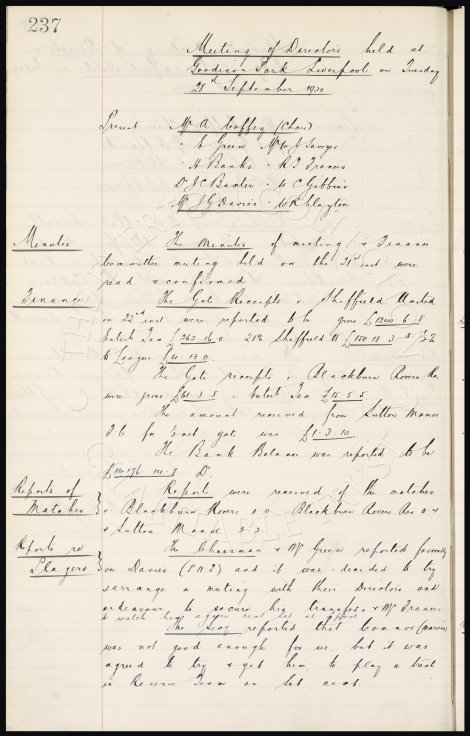 237
Meeting of Directors held at
Goodison Park Liverpool on Tuesday
28th September 1920.
Present Mr A Coffey (Chair)
" E Green Mr W J Sawyer
" H Banks " R T Francis
Dr J C Baxter " W C Gibbins
Mr J G Davies " W R Clayton
Minutes
The Minutes of meeting & Finance
Committee meeting held on the 21st inst were
read & confirmed
Finance
The Gate Receipts v Sheffield United
on 22nd inst were reported to be gross £1200. 6. 8
Entert Tax £262. 16. 0 20% Sheffield U £150. 18. 3
to League
The Gate receipts v Blackburn Rovers Res
were gross £61. 3. 5. Entert Tax £15. 5. 5
The amount received from Sutton Manor
for ½ net gate was £1. 3. 10.
The Bank Balance was reported to be
£14176. 14. 8 Dr.
Reports of
Matches
Reports were received of the matches
v Blackburn Rovers 0-0 Blackburn Rovers Res
v Sutton Manor
Reports re
Players
The Chairman & Mr Green reported favorably
on Davies (P N E) and it was decided to try
& arrange a meeting with their Directors and
endeavour to secure his transfer & Mr Francis
to watch him again next Sat
The Secy reported that Connor
was not good enough for us. but it was
agreed to try & get him to play a trial
in Reserve Team on Sat next.